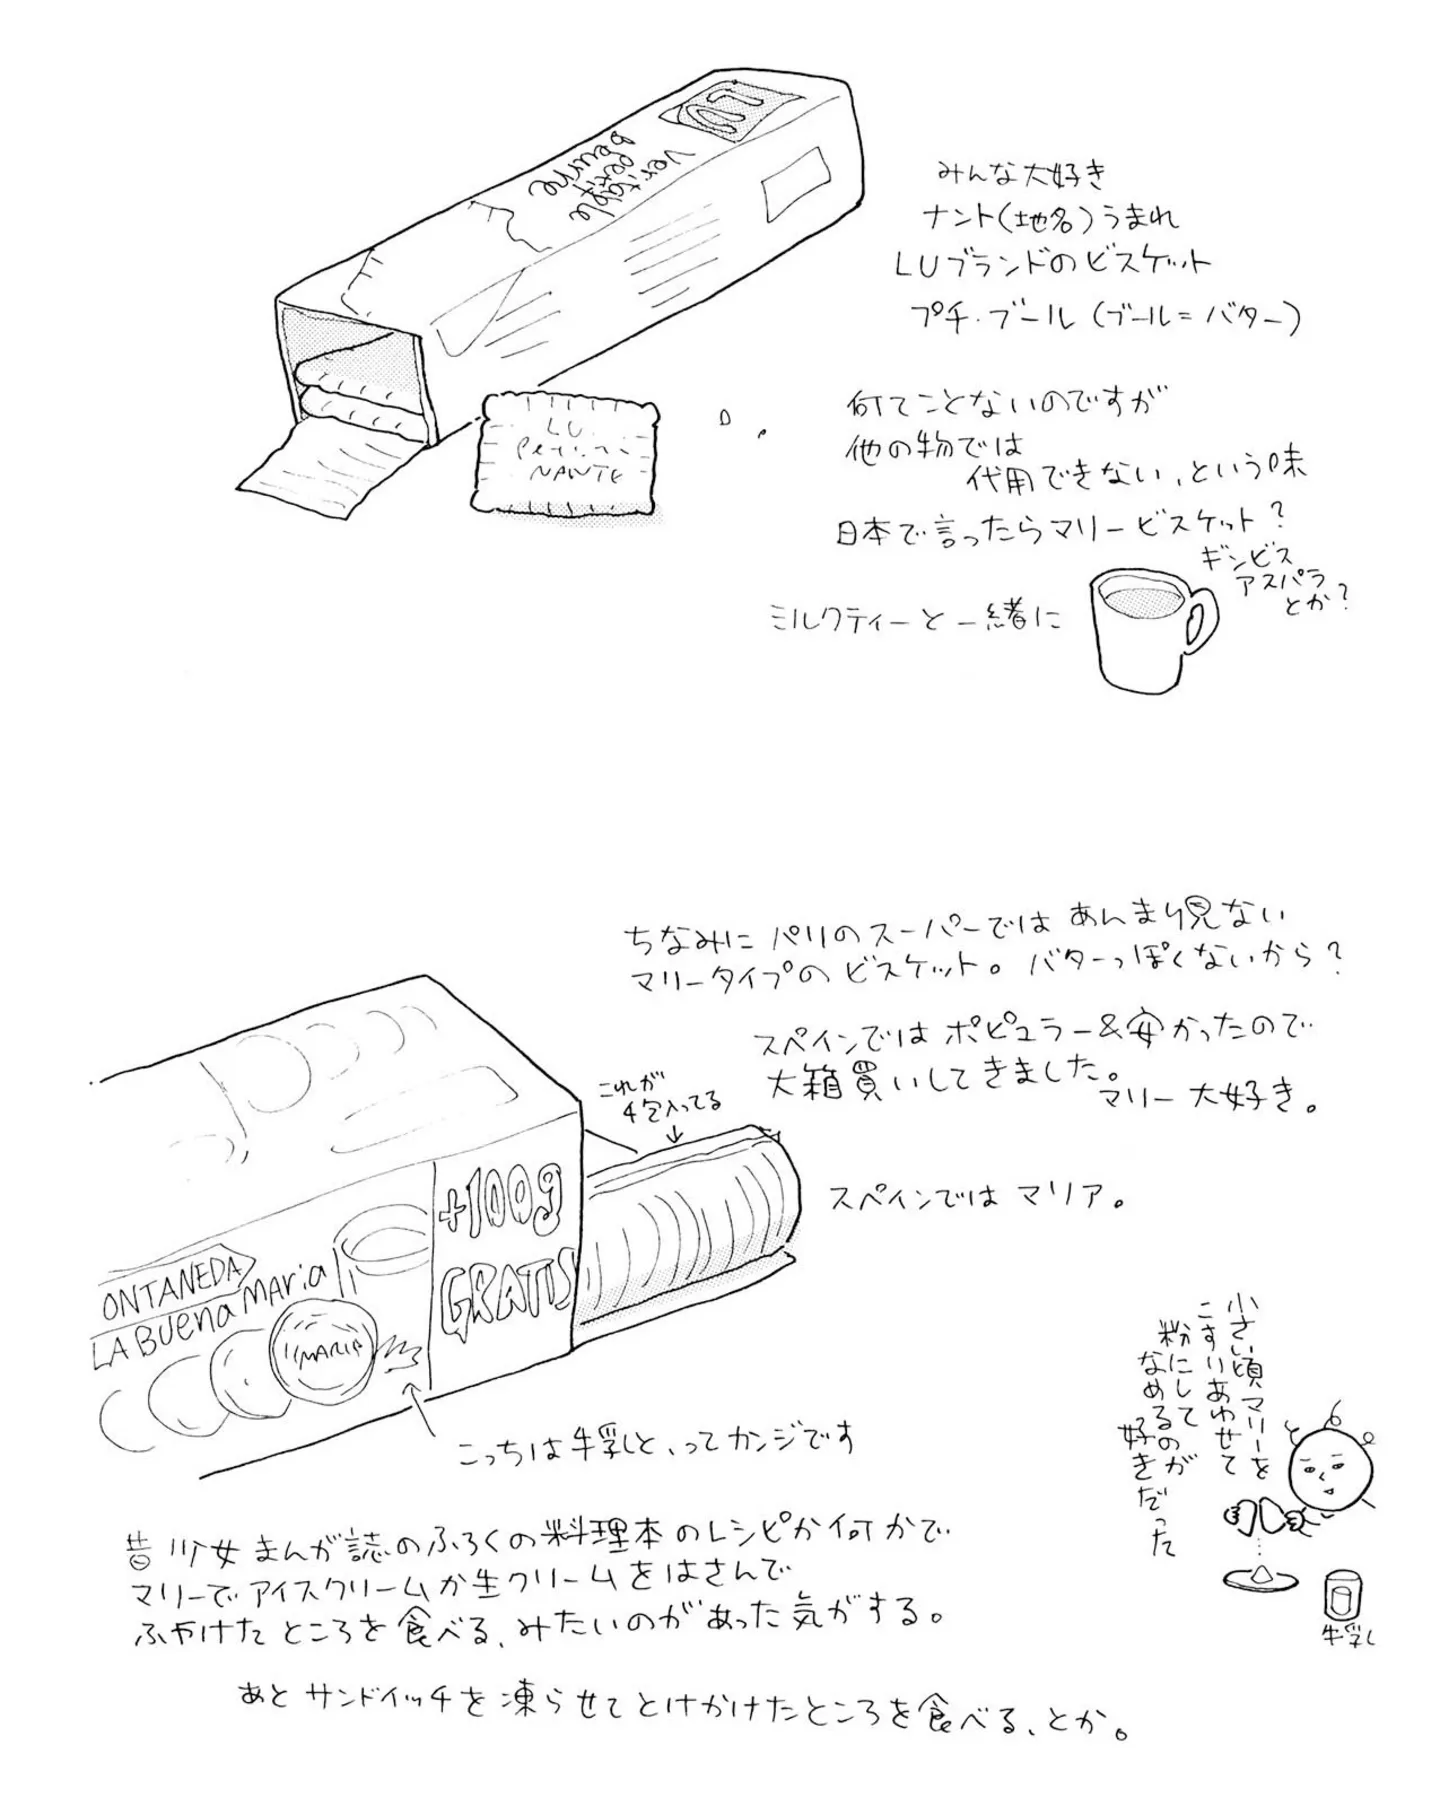 LU
Veritable
petit
beurre
みんな大好き
ナント(地名)うまれ
LUブランドのビスケット
プチ・ブール(ブール=バター)
LU
NANTE
何てことないのですが
他の物では
代用できない、という味
日本で言ったらマリービスケット?
ギンビス
アスパラ
とか?
ミルクティーと一緒に
ちなみにパリのスーパーではあんまり見ない
マリータイプのビスケット。バターっぽくないから?
スペインではポピュラー&安かったので
大箱買いしてきました。
マリー大好き。
これが
4包入ってる
スペインではマリア。
+100g
GRATIS
ONTANEDA
LA BUENA MARIA
MARIA
こっちは牛乳と、ってカンジです
小さい頃マリーを
こすりあわせて
粉にして
なめるのが
好きだった
牛乳
昔少女まんが誌のふろくの料理本のレシピか何かで
マリーでアイスクリームか生クリームをはさんで
ふやけたところを食べる、みたいのがあった気がする。
あとサンドイッチを凍らせてとけかけたところを食べる、とか。